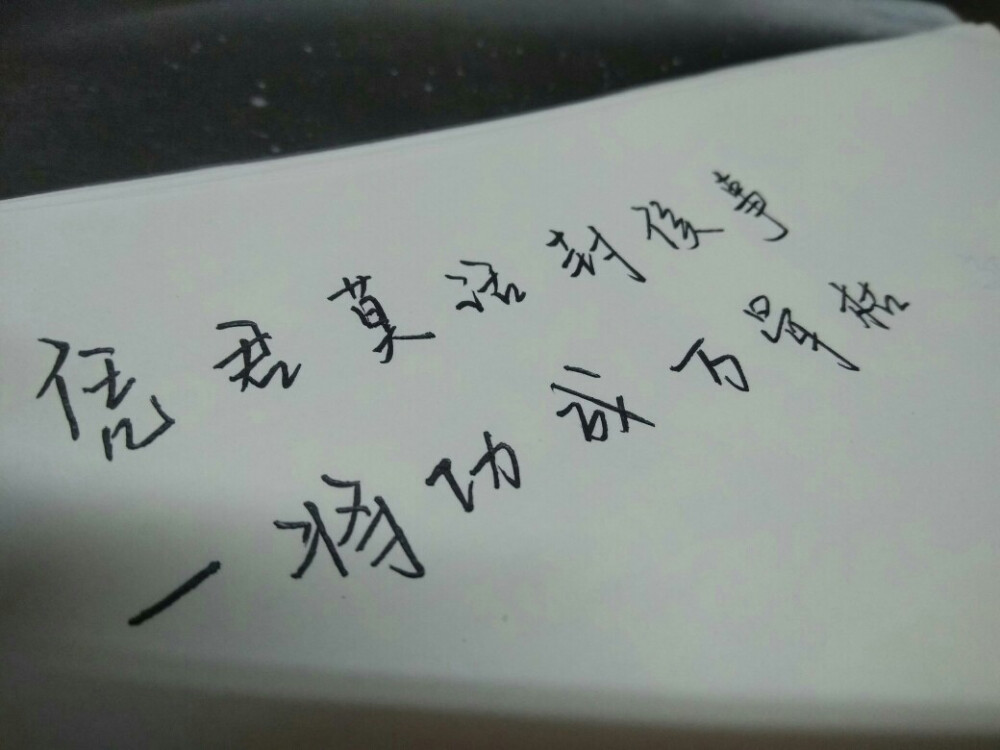 凭君莫话封侯事
一将功成万骨枯